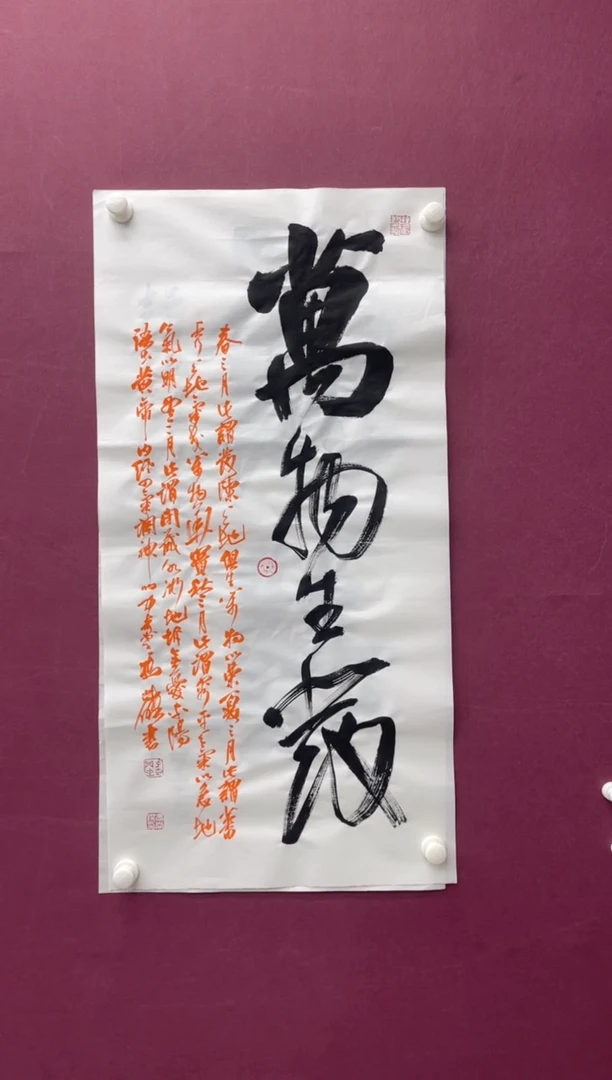 萬物生發
春三月此謂發陳天地俱生萬物以榮夏三月此謂蕃
秀天地氣交萬物華實秋三月此謂容平天氣以急地
氣以明冬三月此謂閉藏水冰地坼無擾乎陽
黃帝內經四氣調神 書